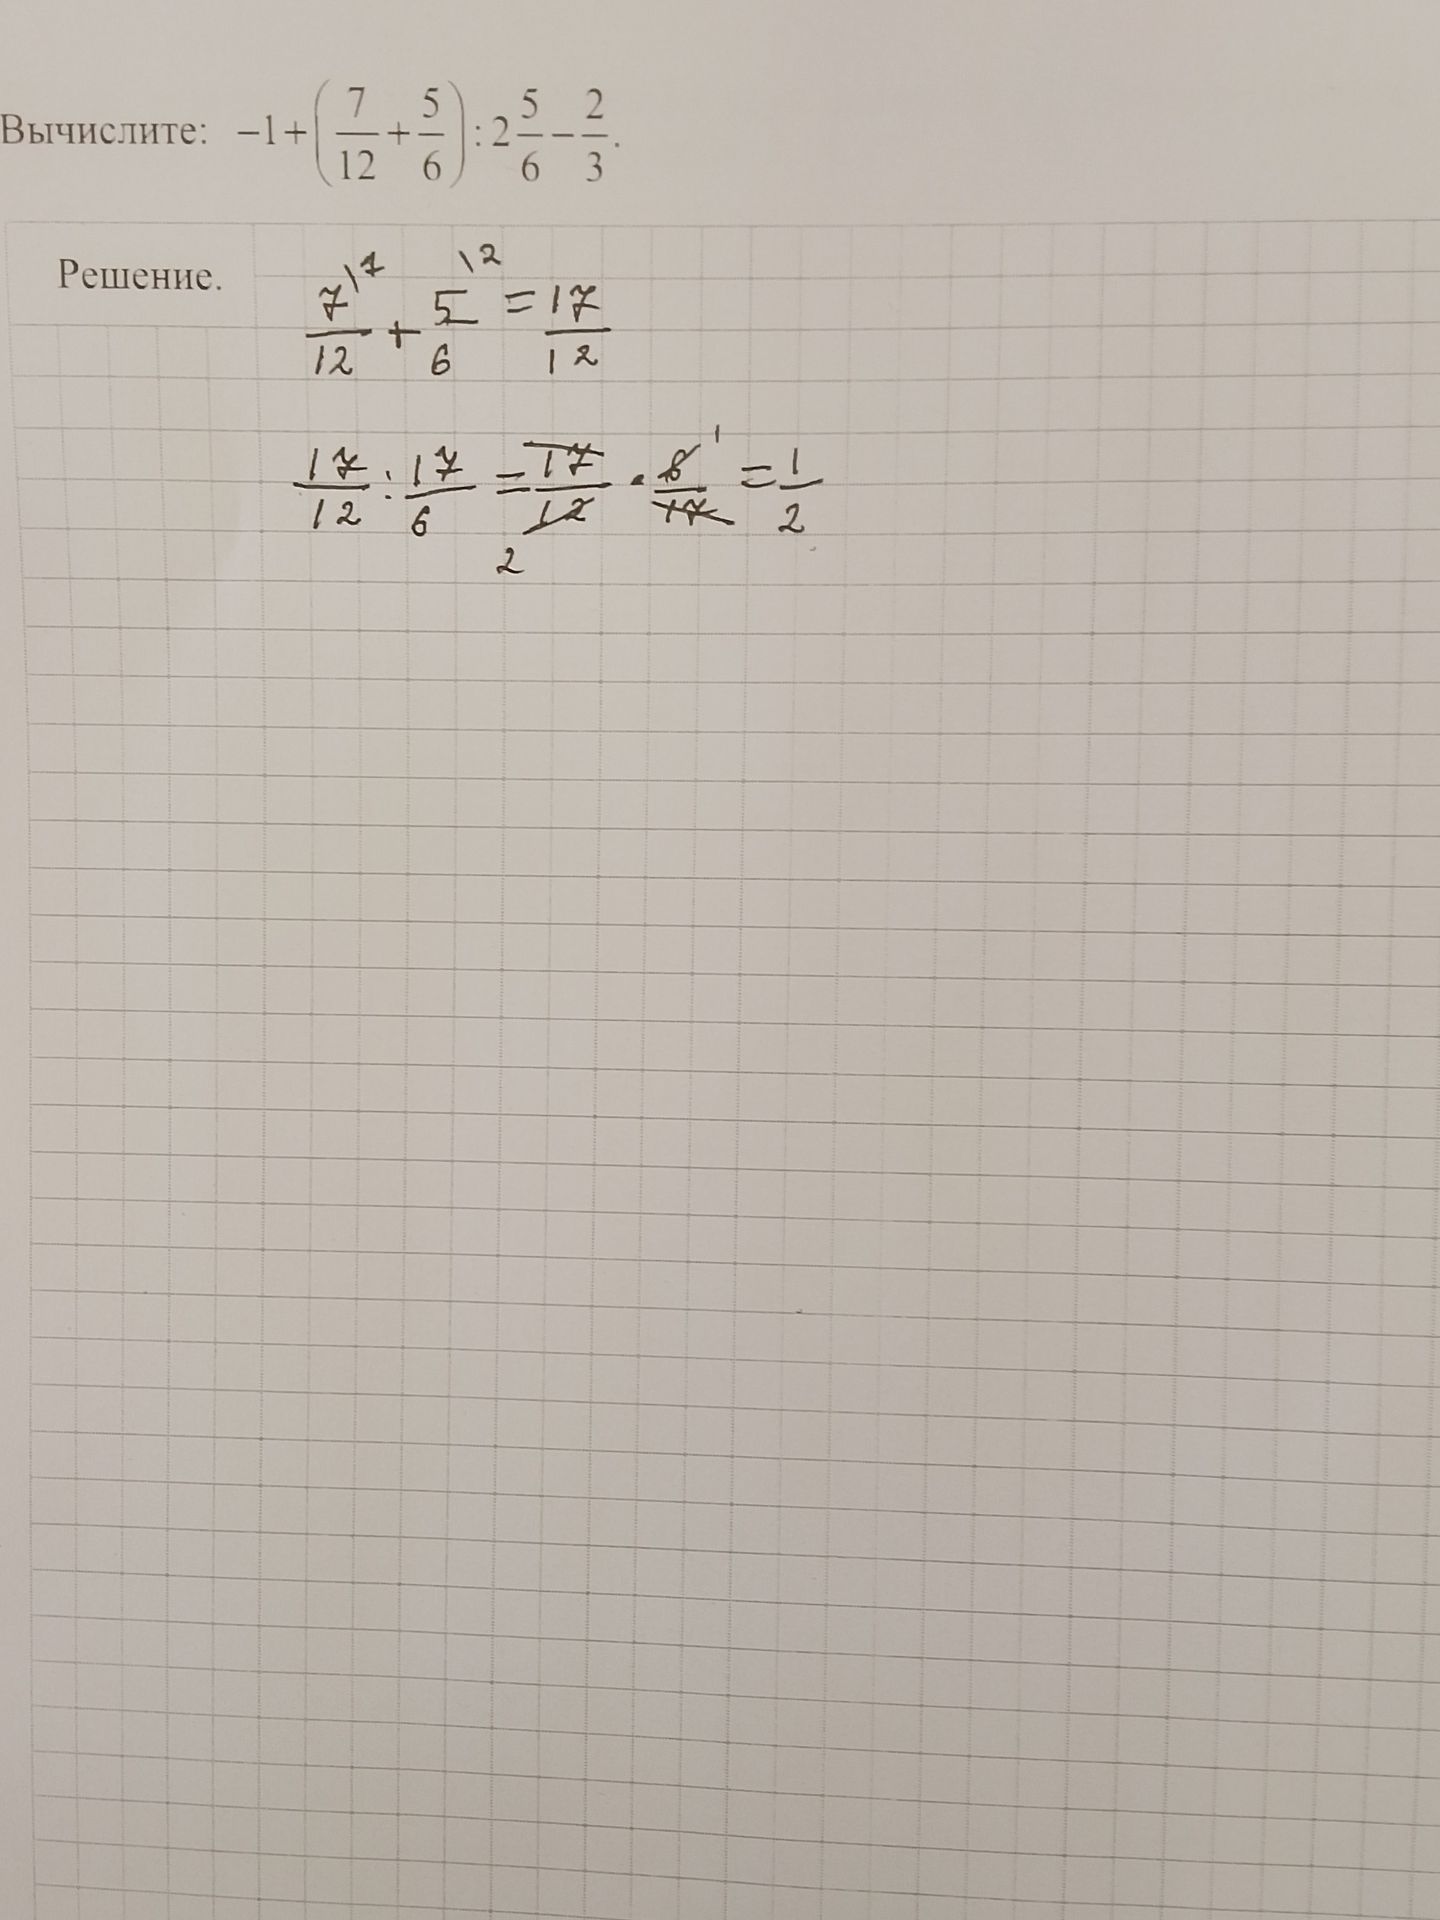 Вычислите: −1+(7/12+5/6):2 5/6−2/3.
Решение.
7\1/12 + 5\2/6 = 17/12
17/12 : 17/6 = 17/12 · 6/17 = 1/2
1
2